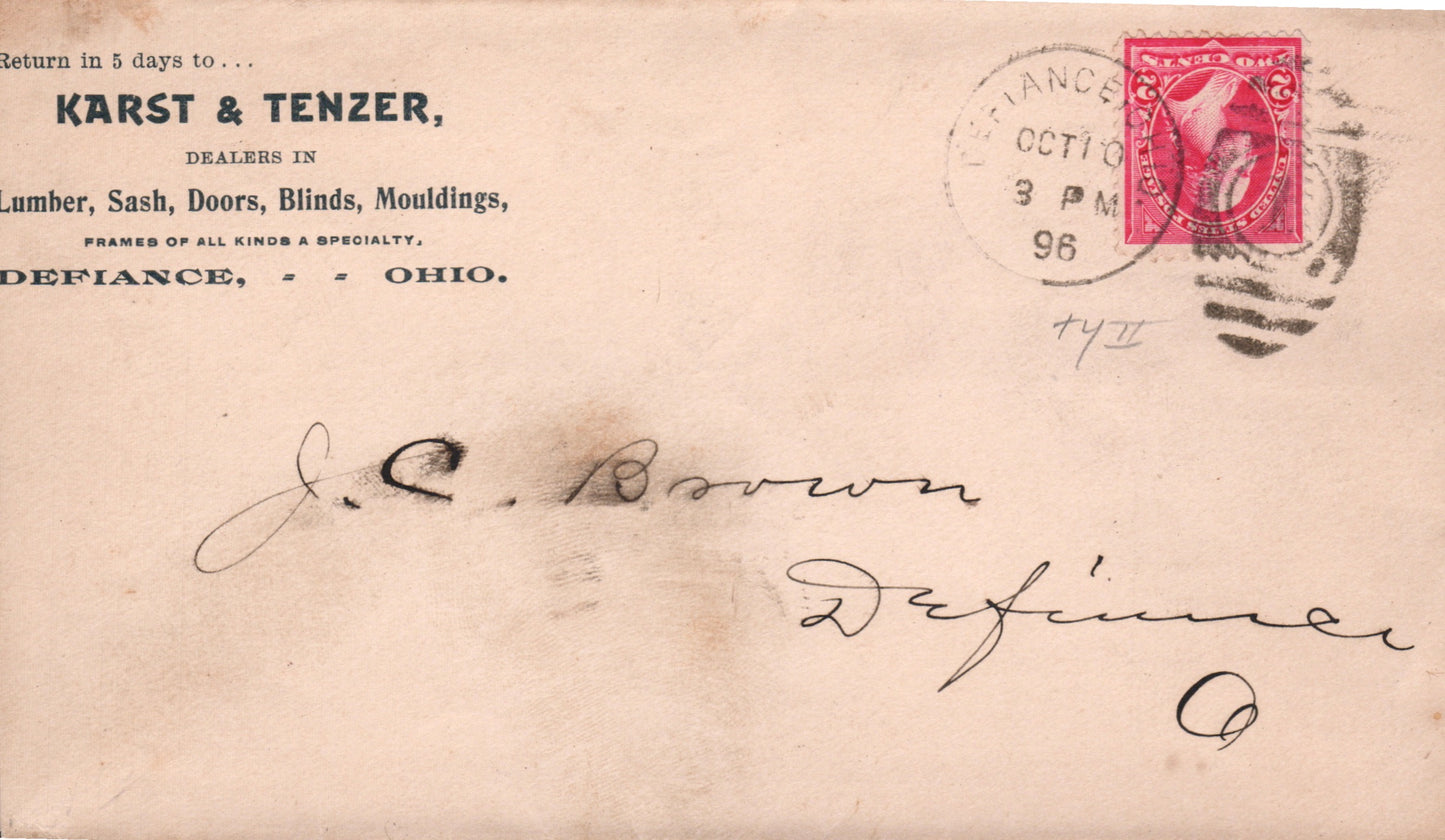 Return in 5 days to...
KARST & TENZER,
DEALERS IN
Lumber, Sash, Doors, Blinds, Mouldings,
FRAMES OF ALL KINDS A SPECIALTY,
DEFIANCE, - - OHIO.
DEFIANCE, OHIO.
OCT 10
3 PM
96
UNITED STATES POSTAGE
2 2
TWO CENTS
ty II
J. C. Brown
Defiance
O